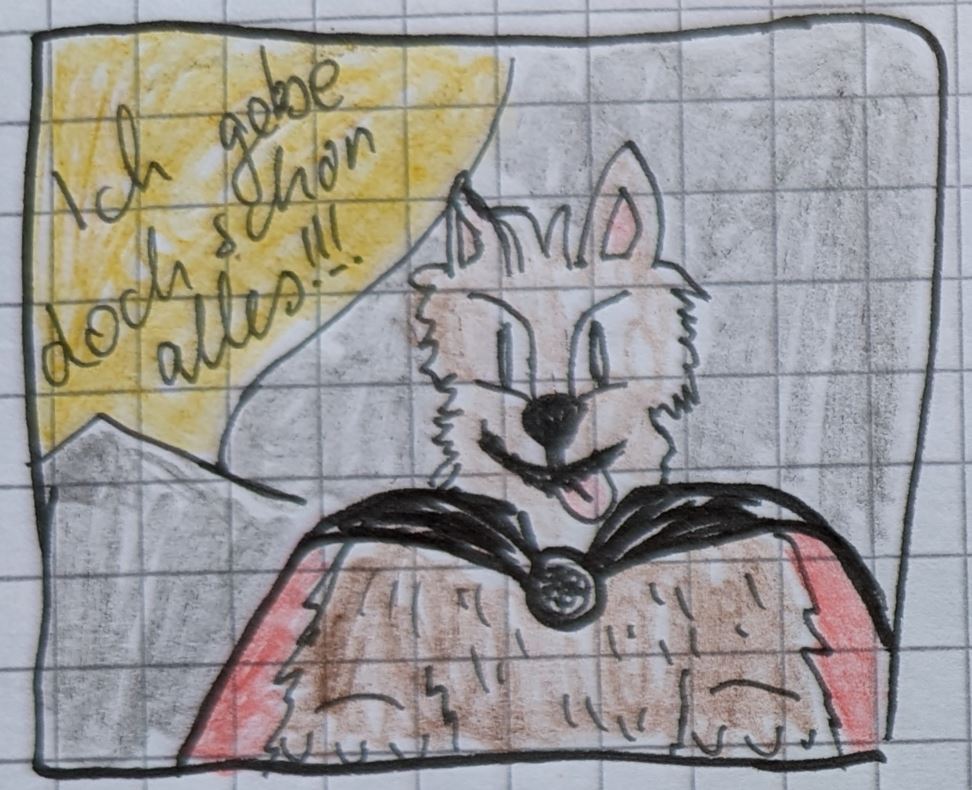 Ich gebe
doch schon
alles!!!